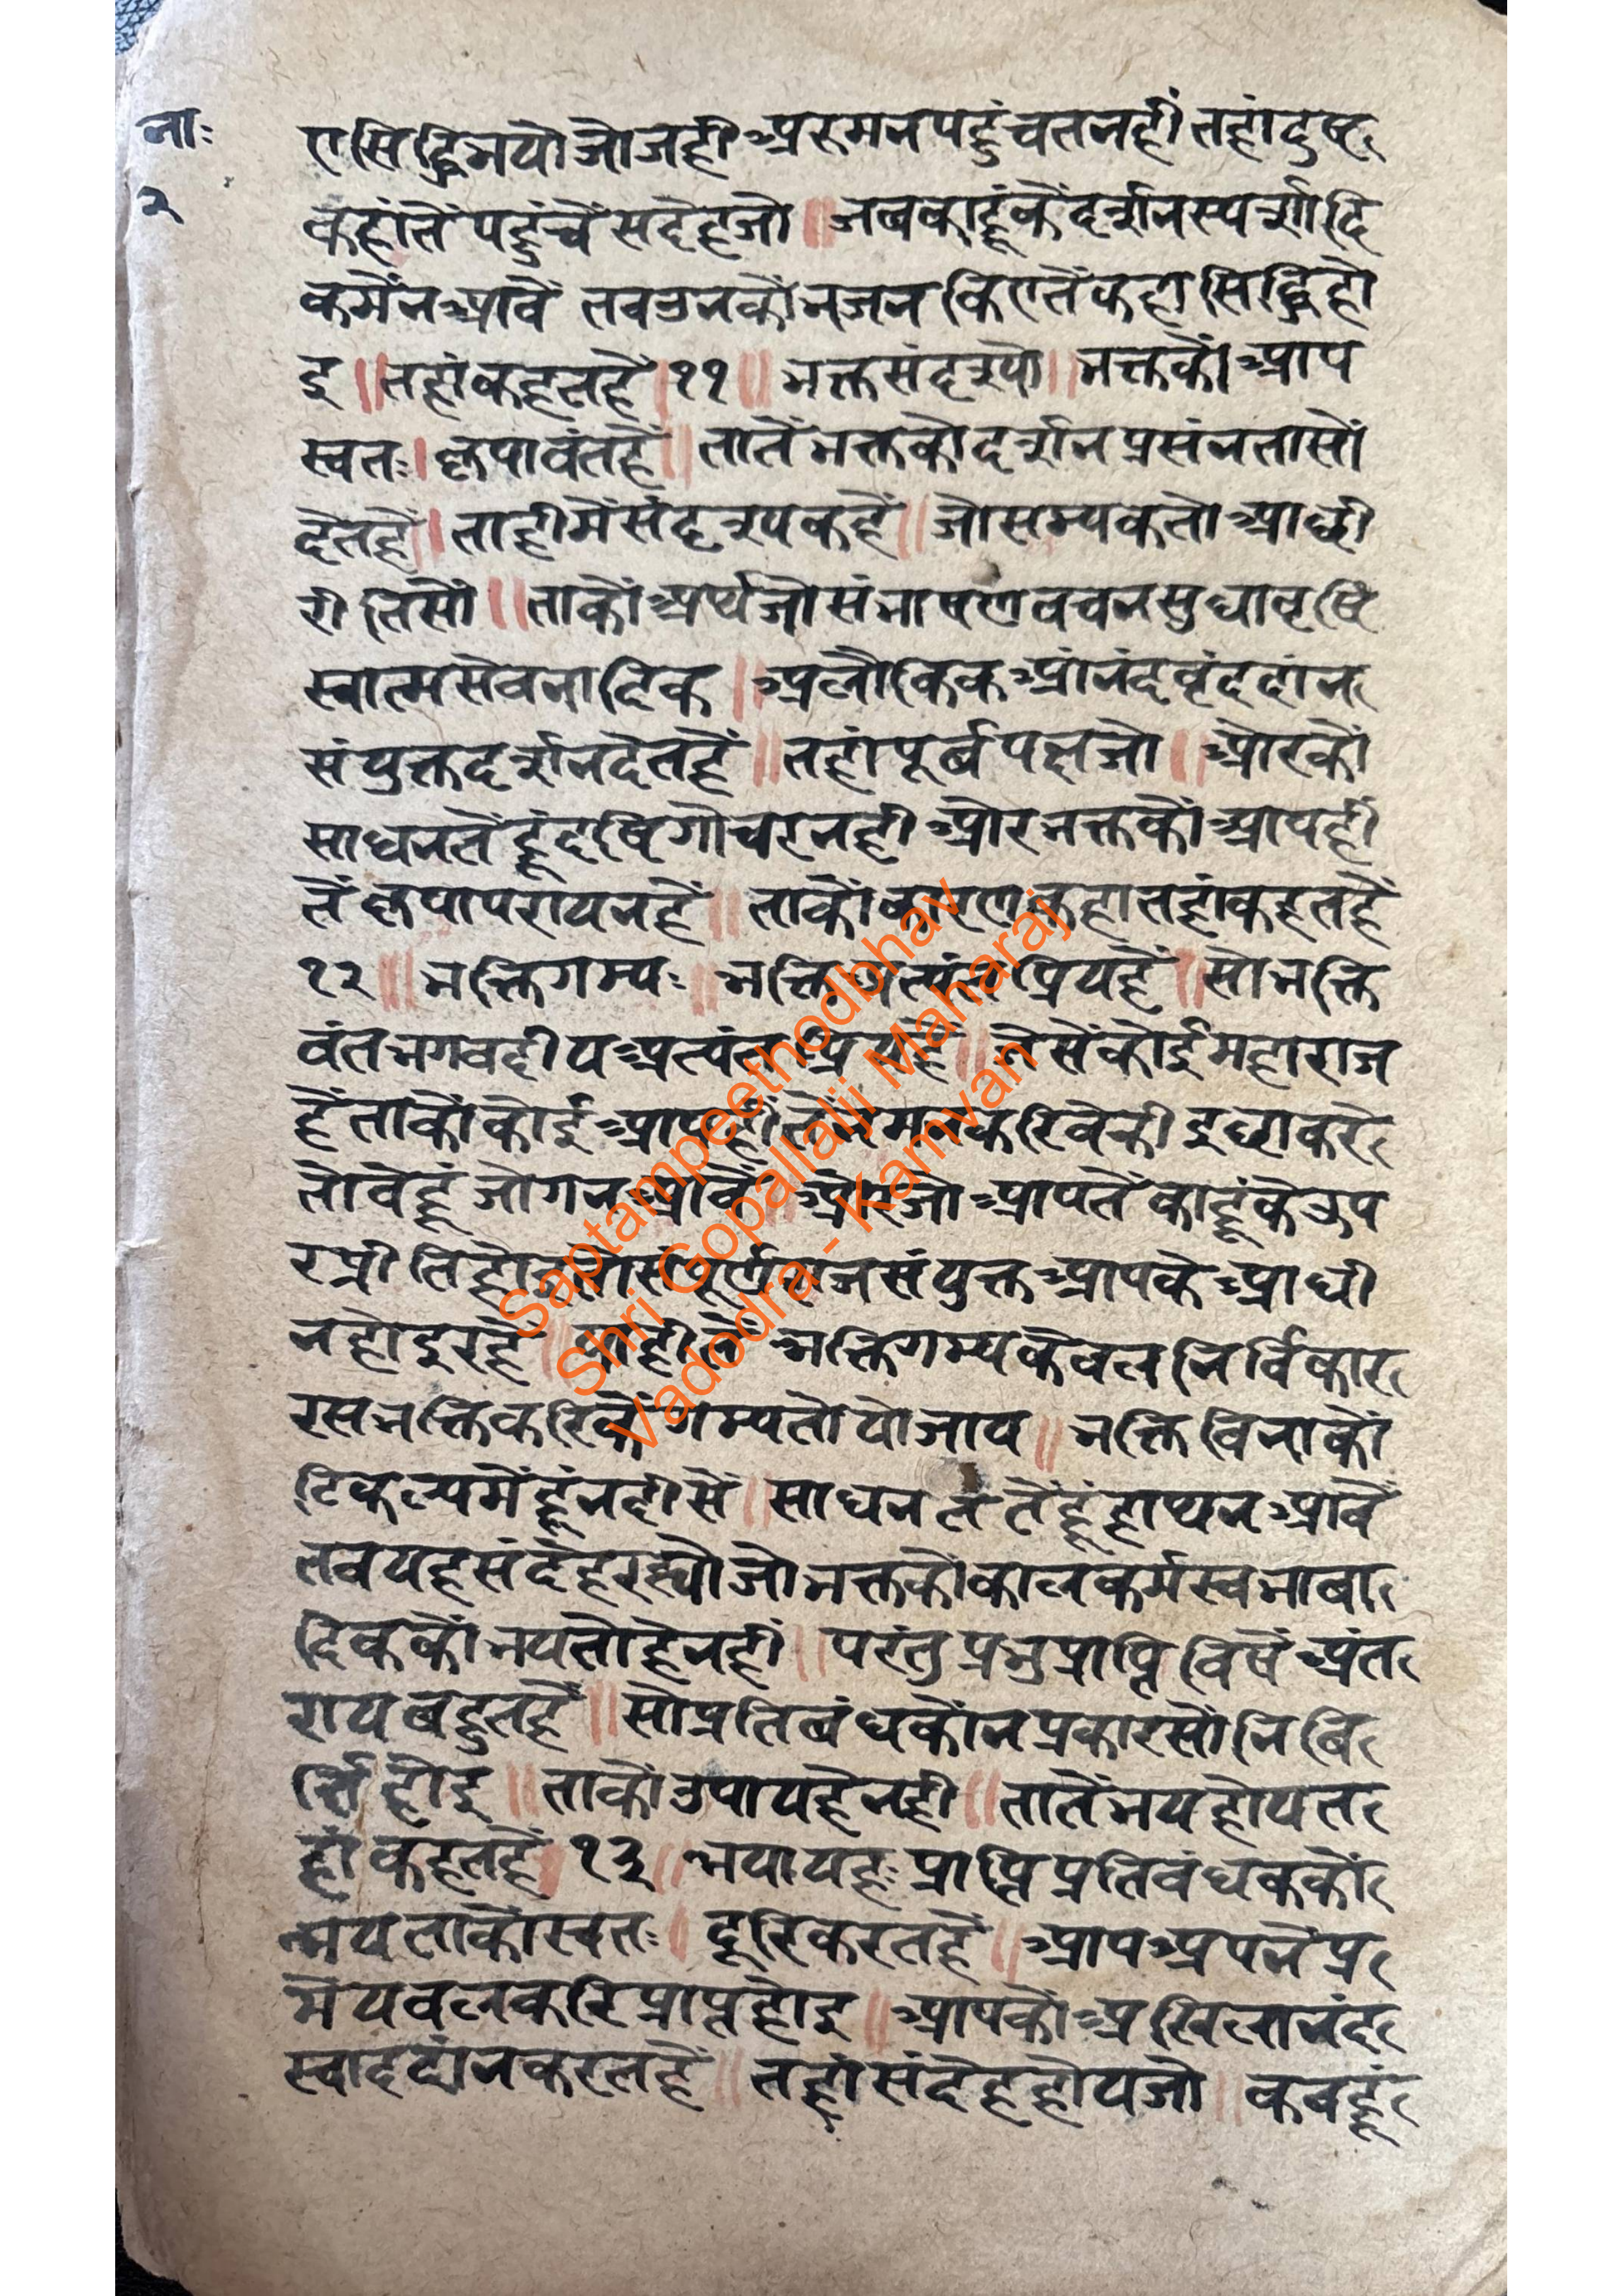 नाः
२
ए सिद्धि भयो जो जही अरु मन पहुंचत नहीं तहां दुष्ट
कहां तें पहुंचें सदेह जो ॥ जब काहूंकें दर्शन स्पर्शादि
कमें न आवें तब उनकों भजन किए तें कहा सिद्धि हो
इ ॥ तहां कहत हैं । ११ ॥ भक्त संदृश्यो ॥ भक्तकों आप
स्वतः । कृपावंत हैं ॥ तातें भक्तकों दर्शन प्रसंनतासों
देत हैं । ताही में संदृश्य कहें ॥ जो सम्यक तो आछी
रीतिसों ॥ ताकों अर्थ जो संभाषण वचन सुधा वृष्टि
स्वात्म सेवनादिक ॥ अलौकिक आंनंद वृंद दांन
संयुक्त दर्शन देत हैं ॥ तहां पूर्ब पक्ष जो ॥ औरकों
साधन तें हूं दृष्टि गोचर नही और भक्तकों आपही
तें कृपा परायन हैं ॥ ताकों कारण कहा तहां कहत हैं
१२ ॥ भक्तिगम्यः ॥ भक्ति अत्यंत प्रिय हैं ॥ सो भक्ति
वंत भगवदीय अत्यंत प्रिय हैं ॥ जेसें कोई महाराज
हैं ताकों कोई आपही तें मन करिवेकी इछा करे
तो वे हूं जोग न आवें ॥ और जो आप तें काहूंके ऊप
र प्रीति होइ तो संपूर्ण राज संयुक्त आपके आधी
न होइ रहे ॥ याही तें भक्तिगम्य केवल निर्विकार
रस भक्ति करिकें गम्यतो यो जाय ॥ भक्ति विना को
टि कल्प में हूं नहीं सें ॥ साधन ल तें हूं हाथ न आवें
तव यह संदेह रह्यो जो भक्तकों काल कर्म स्वभाबा
दिककों भय तो हे नहीं ॥ परंतु प्रभु प्राप्ति विषें अंत
राय बहुत हैं ॥ सो प्रतिबंध कोंन प्रकारसों निबि
र्त्ति होइ ॥ ताकों उपाय हे नही ॥ तातें भय होय त
हां कहत हैं । १३ ॥ भयापहः प्राप्ति प्रतिवंधककों
भय ताकों स्वतः । दूरि करत हैं ॥ आप अपनें प्र
मेय वल करि प्राप्त होइ ॥ आपकों अखिलानंद
स्वाद दांन करत हैं ॥ तहां संदेह होय जो ॥ कबहूं
Saptampeethodbhav
Shri Gopallalji Maharaj
Vadodra - Kamvan